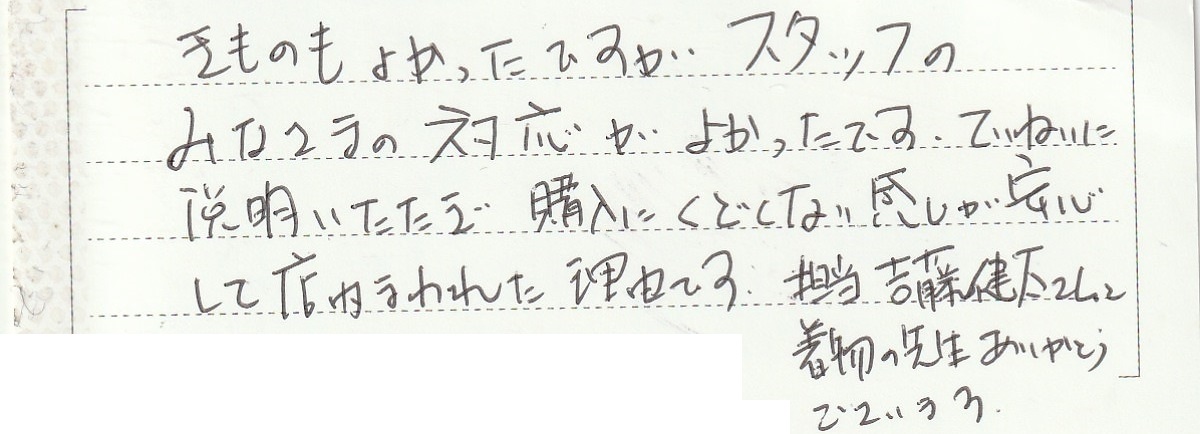 きものもよかったですが スタッフの
みなさまの対応が よかったです。ていねいに
説明いただき 購入にくどくない感じが安心
して店内まわれた理由です。担当 吉藤健太さんと
着物の先生ありがとう
ございます。